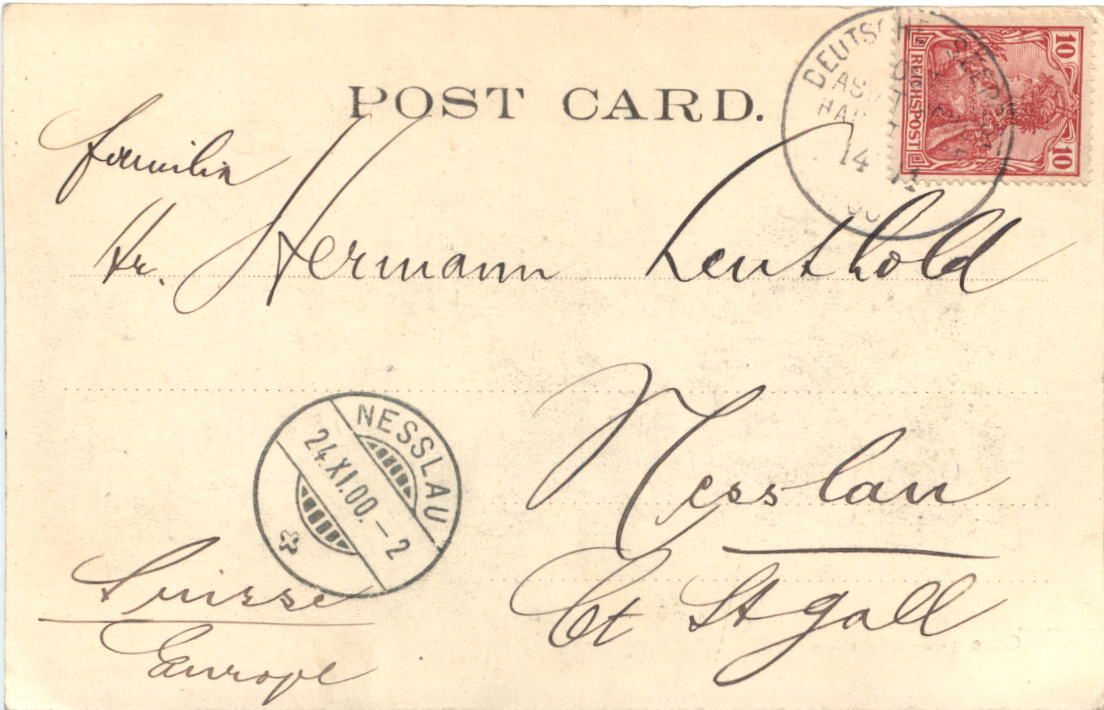 POST CARD.
DEUTSCHE SEEPOST
14 11
00
REICHSPOST
10
10
Familie
Hr. Hermann Leuthold
Nesslau
Ct St gall
NESSLAU
24.XI.00.-2
Suisse
Europe